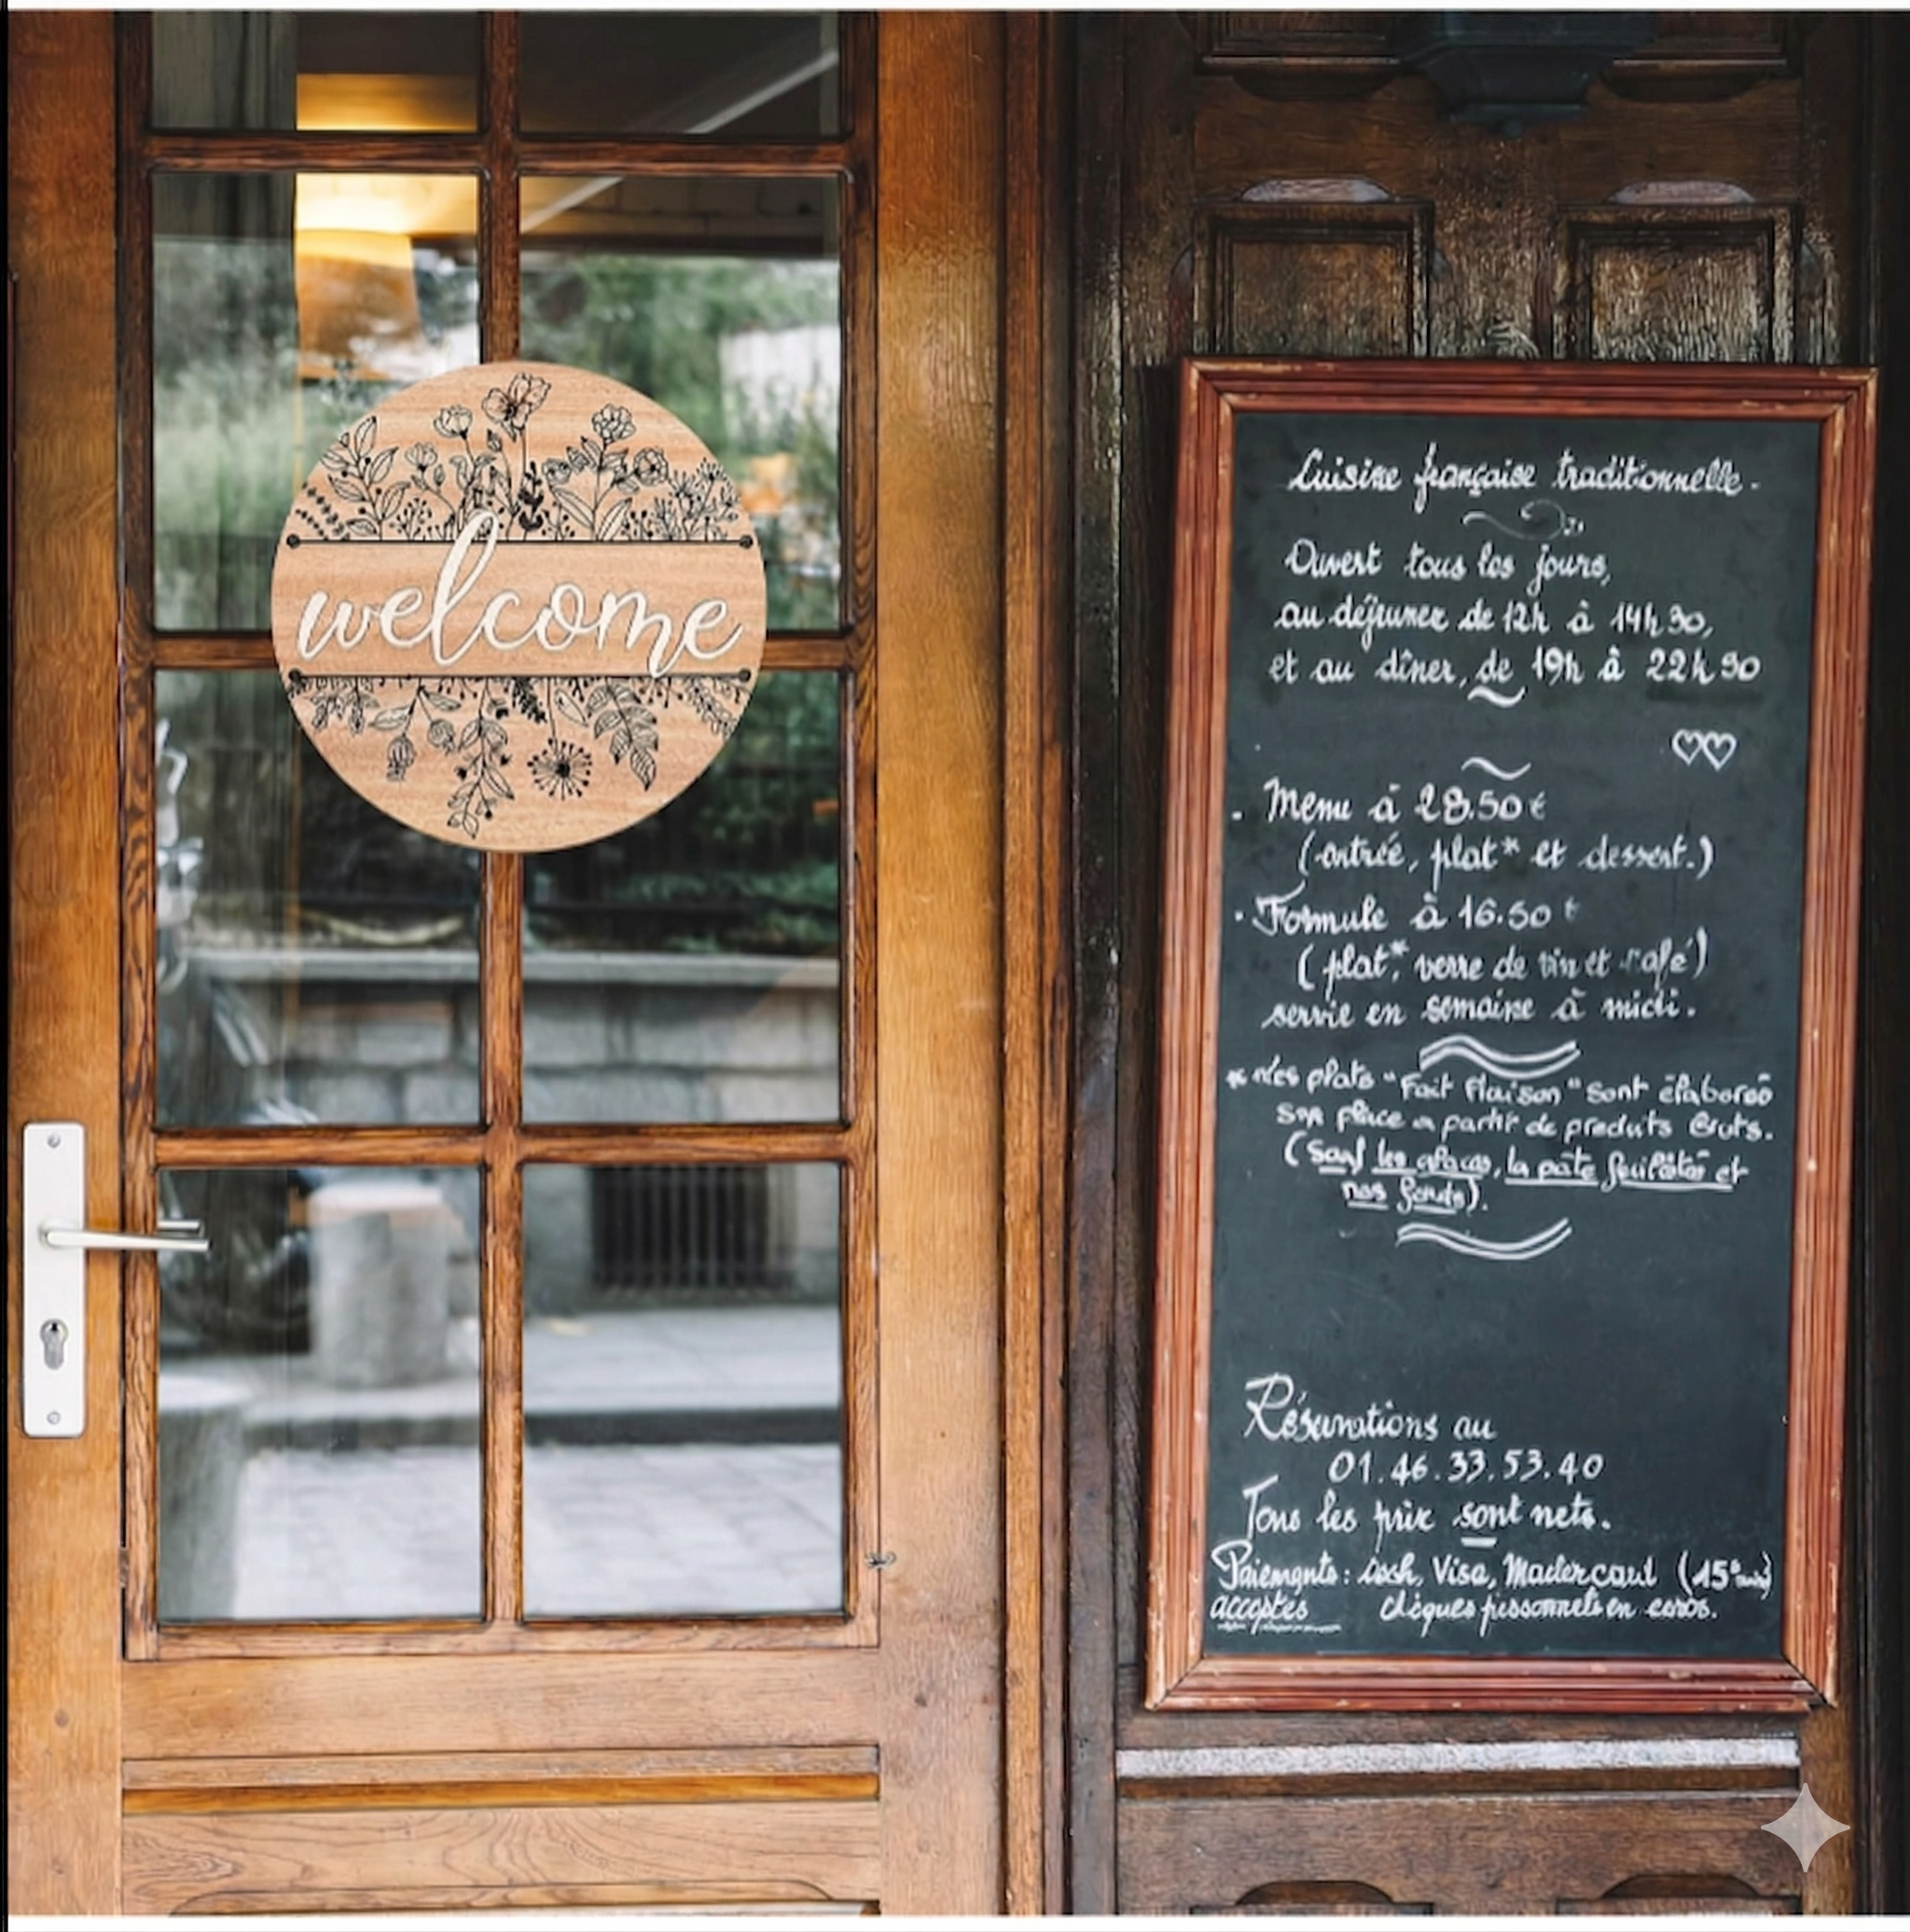 welcome
Cuisine française traditionnelle.
Ouvert tous les jours,
au déjeuner de 12h à 14h30,
et au dîner, de 19h à 22h30
. Menu à 28.50€
(entrée, plat* et dessert.)
. Formule à 16.50 €
(plat*, verre de vin et café)
servie en semaine à midi.
* plats "Fait Maison" sont élaborés
sur place à partir de produits Bruts.
(Sauf les glaces, la pâte feuilletée et
nos fonds).
Réservations au
01.46.33.53.40
Tous les prix sont nets.
Paiements: Cash, Visa, Mastercard (15€
acceptés chèques personnels en euros.